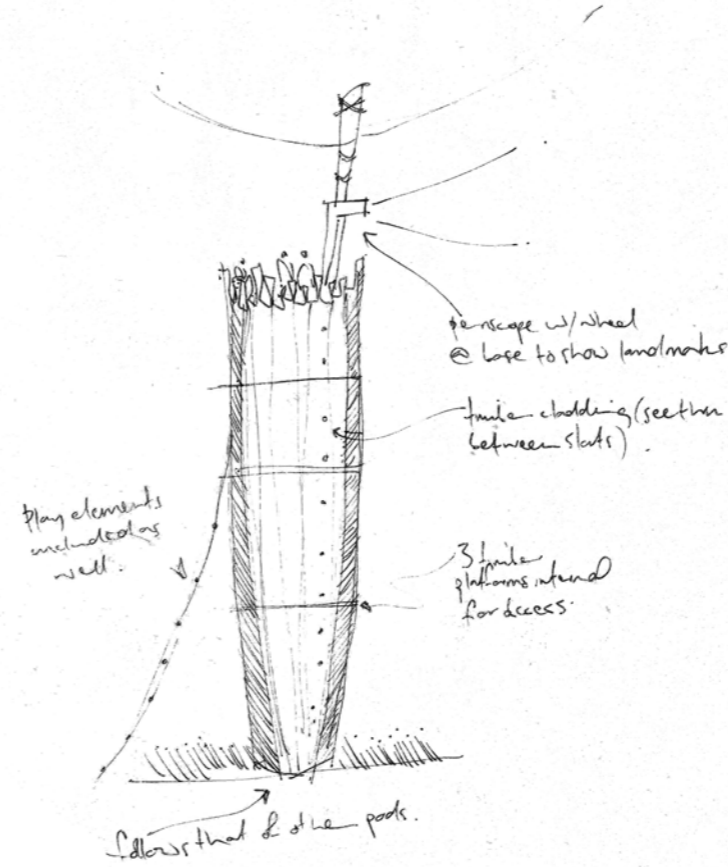 periscope w/ wheel
@ base to show landmarks
timber cladding (see thru
between slats).
Play elements
included as
well.
3 timber
platforms internal
for access.
follows that of other pods.